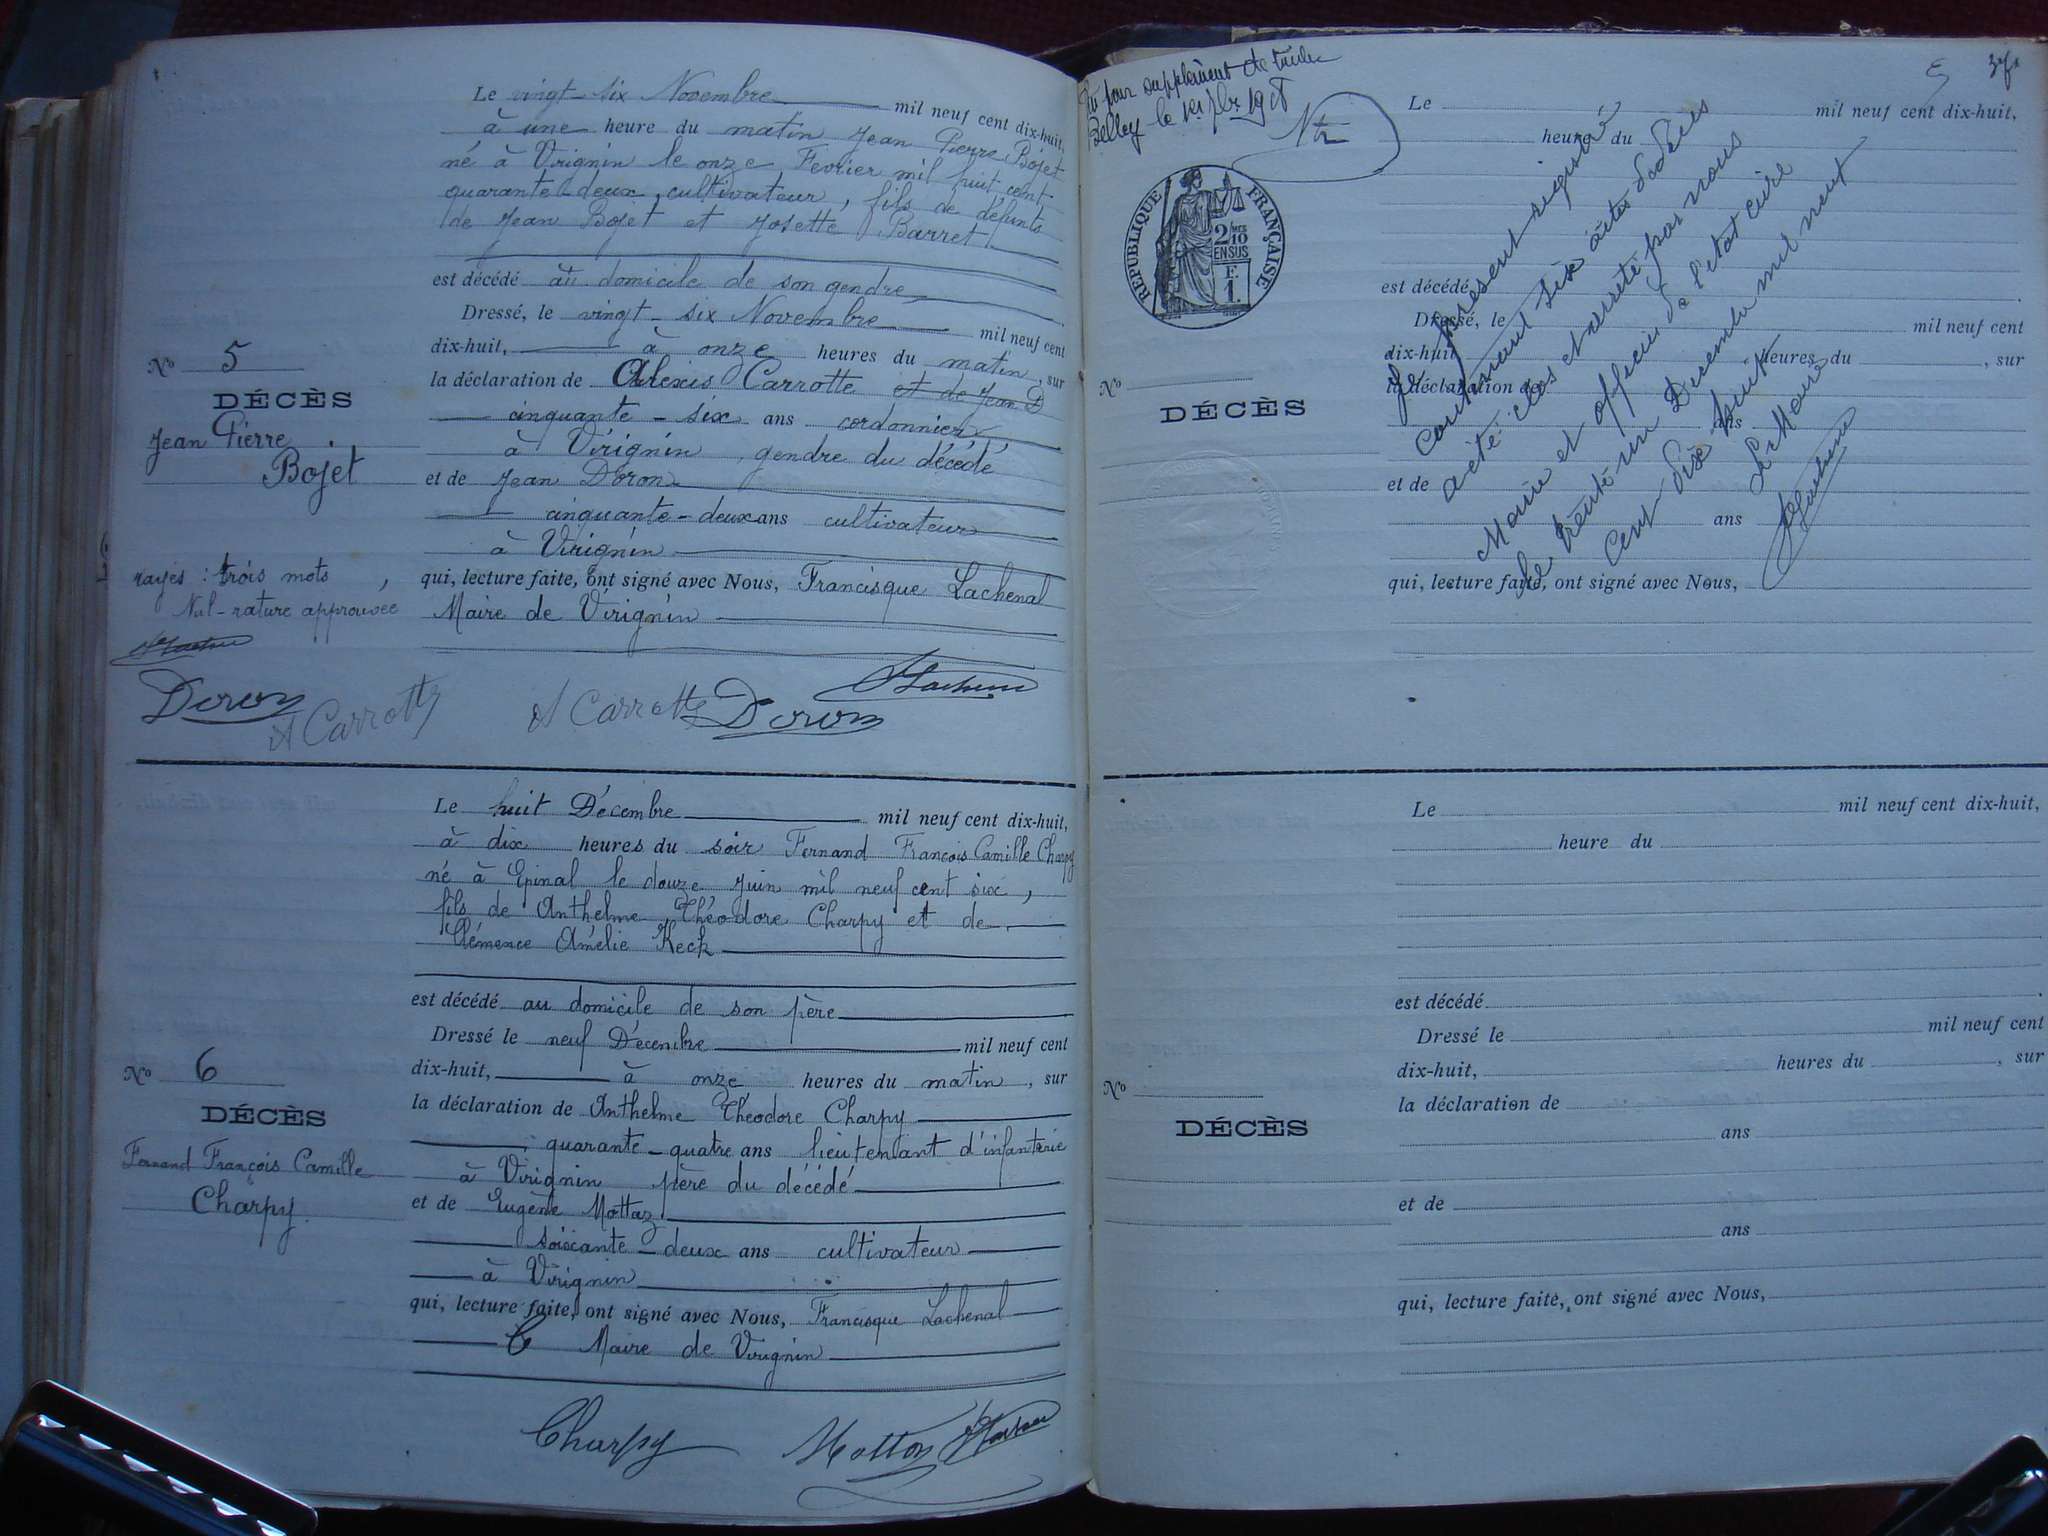 Le vingt-six Novembre mil neuf cent dix-huit,
à une heure du matin Jean Pierre Bojet
né à Virignin le onze Fevrier mil huit cent
quarante-deux, cultivateur, fils de défunts
de Jean Bojet et Josette Barret
est décédé au domicile de son gendre
Dressé, le vingt-six Novembre mil neuf cent
dix-huit, à onze heures du matin, sur
No 5
la déclaration de Alexis Carrotte et de Jean D
DÉCÈS
cinquante-six ans cordonnier
Jean Pierre
à Virignin, gendre du décédé
Bojet
et de Jean Doron
cinquante-deux ans cultivateur
à Virignin
rayés : trois mots
qui, lecture faite, ont signé avec Nous, Francisque Lachenal
Nul-rature approuvée
Maire de Virignin
Doron
A Carrotte
A Carrotte
Doron
Le huit Décembre mil neuf cent dix-huit,
à dix heures du soir Fernand François Camille Charpy
né à Epinal le douze Juin mil neuf cent six,
fils de Anthelme Théodore Charpy et de
Clémence Amélie Keck
est décédé au domicile de son père
Dressé le neuf Décembre mil neuf cent
No 6
dix-huit, à onze heures du matin, sur
DÉCÈS
la déclaration de Anthelme Théodore Charpy
quarante-quatre ans lieutenant d'infanterie
Fernand François Camille
à Virignin père du décédé
Charpy
et de Eugène Mottaz
soixante-deux ans cultivateur
à Virignin
qui, lecture faite, ont signé avec Nous, Francisque Lachenal
Maire de Virignin
Charpy
pour supplément de timbre
Belley le
RÉPUBLIQUE FRANÇAISE
2/10
EN SUS
F.
1.
Le mil neuf cent dix-huit,
heure du
est décédé
Dressé, le mil neuf cent
dix-huit, heures du , sur
No
la déclaration de
DÉCÈS
ans
et de
ans
qui, lecture faite, ont signé avec Nous,
Le présent registre
contenant six actes de décès
a été clos et arrêté par nous
Maire et officier de l'état civil
le trente-un Décembre mil neuf
cent dix huit
Le Maire
Le mil neuf cent dix-huit,
heure du
est décédé
Dressé le mil neuf cent
dix-huit, heures du , sur
No
la déclaration de
DÉCÈS
ans
et de
ans
qui, lecture faite, ont signé avec Nous,